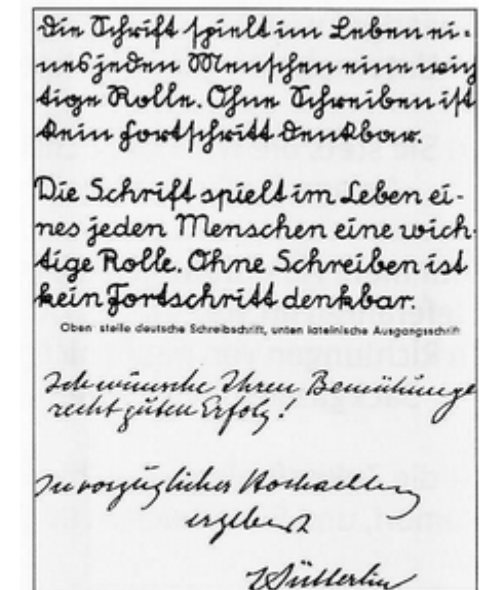 Die Schrift spielt im Leben ei-
nes jeden Menschen eine wich
tige Rolle. Ohne Schreiben ist
kein Fortschritt denkbar.
Die Schrift spielt im Leben ei-
nes jeden Menschen eine wich-
tige Rolle. Ohne Schreiben ist
kein Fortschritt denkbar.
Oben steile deutsche Schreibschrift, unten lateinische Ausgangsschrift
Ich wünsche Ihren Bemühunge
recht guten Erfolg!
In vorzüglicher Hochachtung
ergebenst
Sütterlin